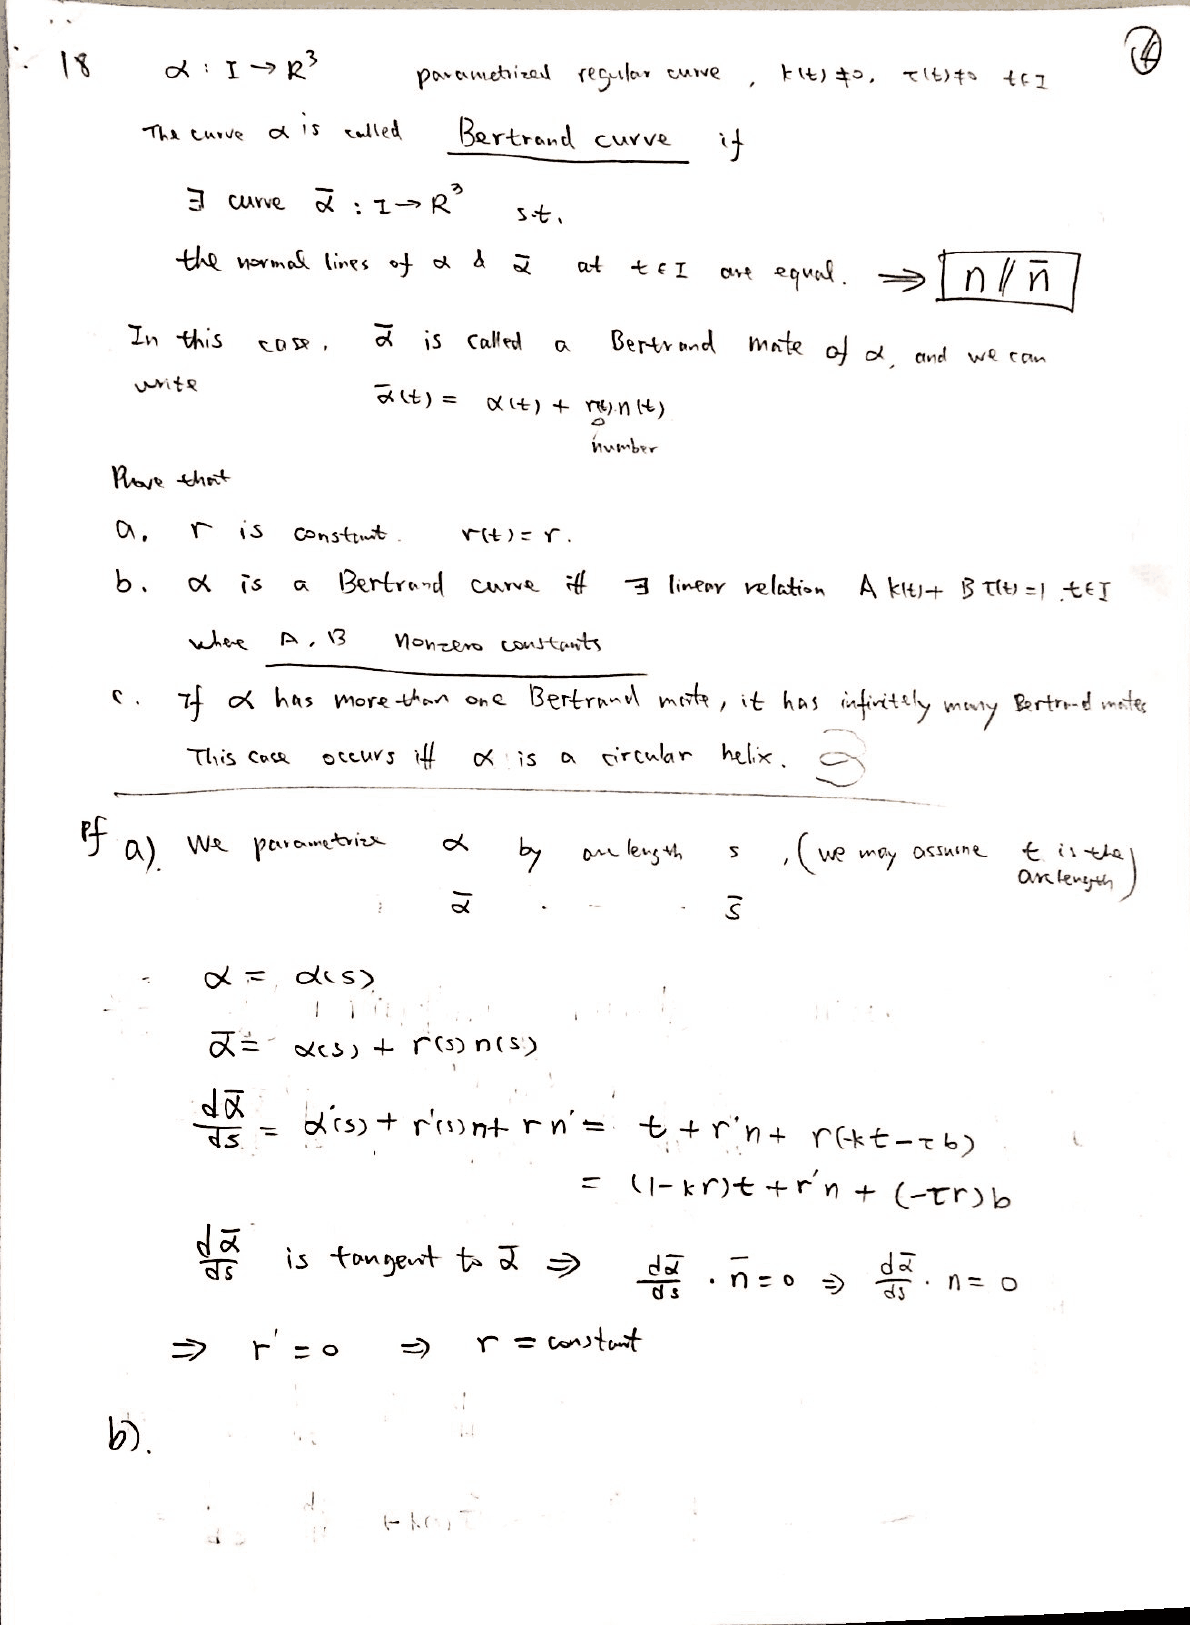 18 α : I → R³ parametrized regular curve , k(t) ≠ 0, τ(t) ≠ 0 t ∈ I
The curve α is called Bertrand curve if
∃ curve ᾱ : I → R³ s.t.
the normal lines of α & ᾱ at t ∈ I are equal. ⇒ n // n̄
In this case, ᾱ is called a Bertrand mate of α, and we can
write ᾱ(t) = α(t) + r(t) n(t)
number
Prove that
a. r is constant. r(t) = r.
b. α is a Bertrand curve iff ∃ linear relation A k(t) + B τ(t) = 1 t ∈ I
where A, B nonzero constants
c. If α has more than one Bertrand mate, it has infinitely many Bertrand mates
This case occurs iff α is a circular helix.
Pf a). We parametrize α by arc length s , ( we may assume t is the
arclength )
ᾱ s̄
α = α(s)
ᾱ = α(s) + r(s) n(s)
dᾱ/ds = α'(s) + r'(s) n + r n' = t + r'n + r(-kt - τb)
= (1 - kr)t + r'n + (-τr)b
dᾱ/ds is tangent to ᾱ ⇒ dᾱ/ds · n̄ = 0 ⇒ dᾱ/ds · n = 0
⇒ r' = 0 ⇒ r = constant
b).